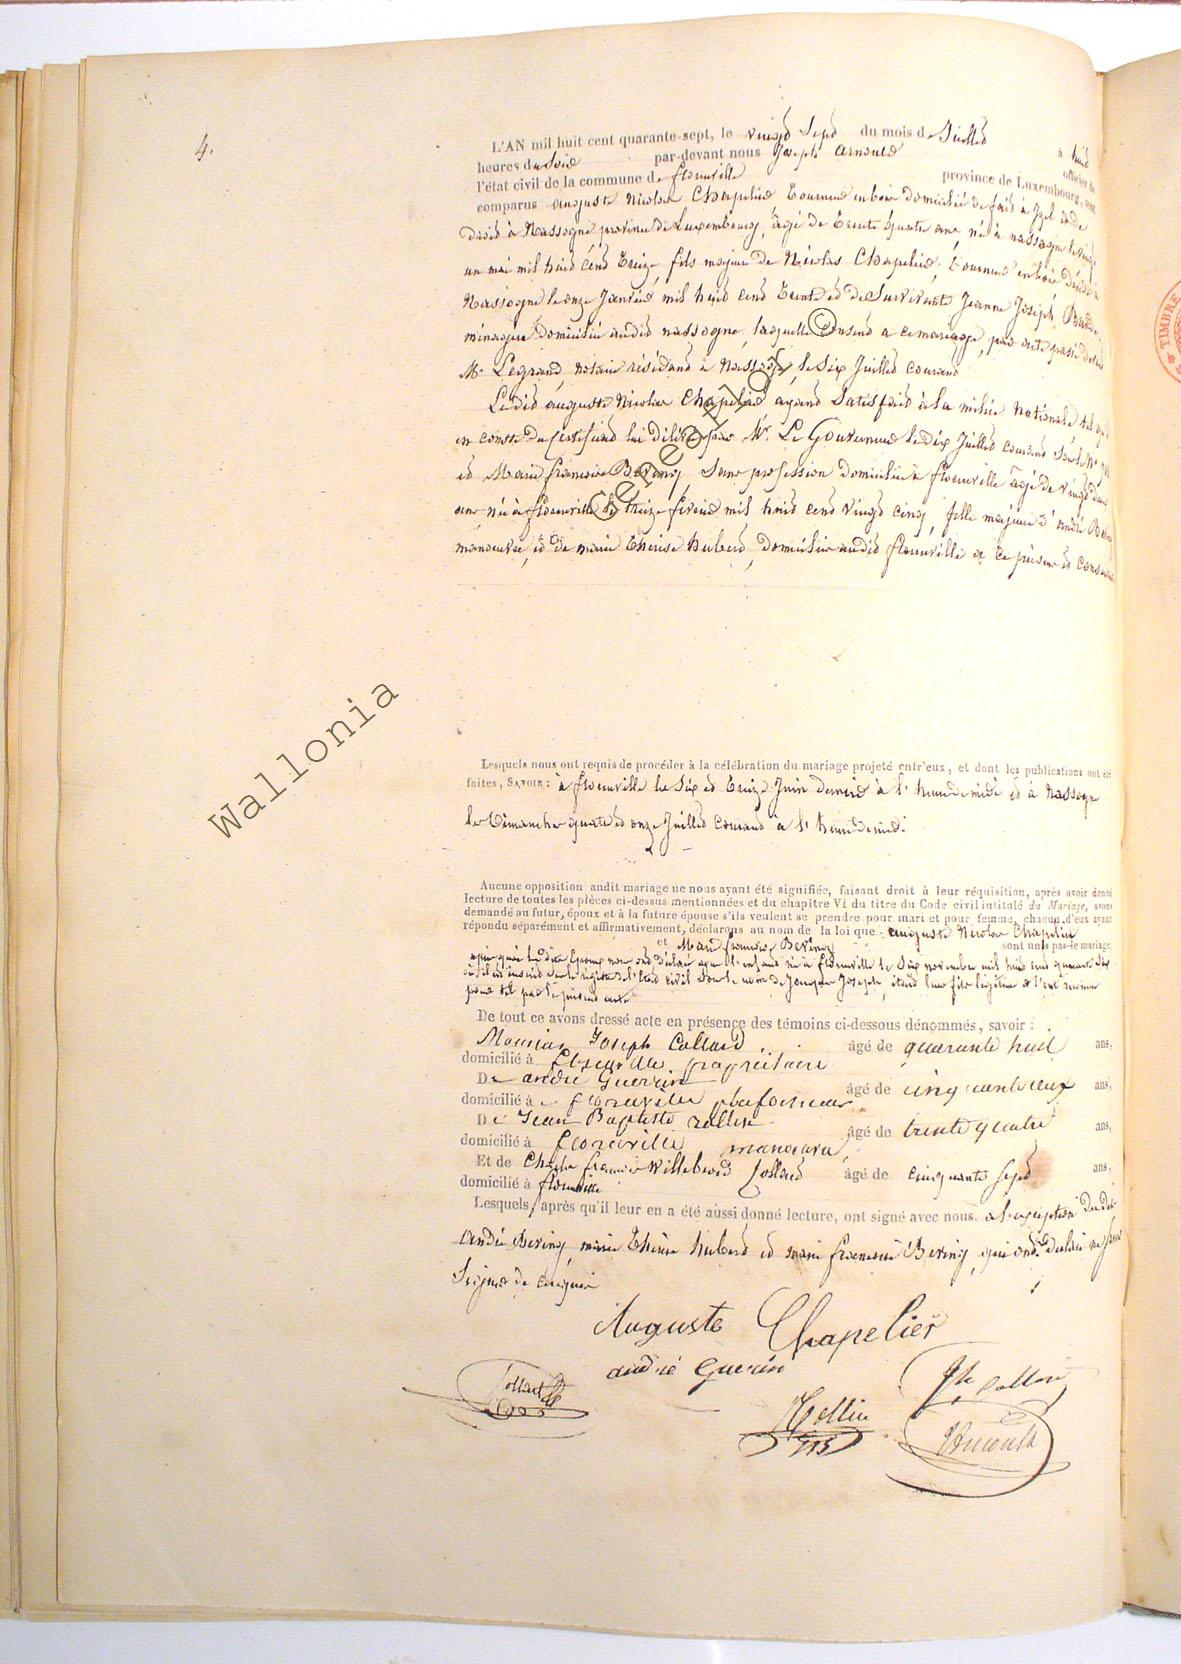 4.
L'AN mil huit cent quarante-sept, le vingt Sept du mois de Juillet à huit
heures du Soir par-devant nous Joseph Arnould officier de
l'état civil de la commune de florenville province de Luxembourg, sont
comparus auguste Nicolas Chapelier Tourneur en bois domicilié de fait à Izel et de
droit à Nassogne province de Luxembourg, âgé de trente quatre ans, né à nassogne le vingt
un mai mil huit cent treize, fils majeur de Nicolas Chapelier, tourneur en bois, décédé à
Nassogne le onze Janvier mil huit cent trente et de Survivante Jeanne Joseph
ménagère domiciliée audit nassogne, laquelle consent a ce mariage, par acte passé devant
Mr Legrand, notaire résidant à Nassogne, le Six Juillet courant
Ledit auguste Nicolas Chapelier ayant Satisfait à la milice Nationale tel qu'il
en conste du Certificat lui délivré par Mr. Le Gouverneur le dix Juillet courant
et Marie françoise Beving, Sans profession domiciliée à florenville âgée de vingt deux
ans, née à florenville le treize février mil huit cent vingt cinq, fille majeure d'andré
manoeuvre, et de marie Thérèse hubert, domiciliés audit florenville a ce présens et consentans
Lesquels nous ont requis de procéder à la célébration du mariage projeté entr'eux, et dont les publications ont été
faites, SAVOIR : à florenville les Six et treize Juin dernier à l'heure de midi et à Nassogne
les Dimanches quatre et onze Juillet courant à l'heure de midi.
Aucune opposition audit mariage ne nous ayant été signifiée, faisant droit à leur réquisition, après avoir donné
lecture de toutes les pièces ci-dessus mentionnées et du chapitre VI du titre du Code civil intitulé du Mariage, avons
demandé au futur, époux et à la future épouse s'ils veulent se prendre pour mari et pour femme, chacun d'eux ayant
répondu séparément et affirmativement, déclarons au nom de la loi que auguste Nicolas Chapelier
et Marie françoise Beving sont unis par le mariage
après quoi lesdits Epoux nous ont déclaré que l'enfant né à florenville le Six novembre mil huit cent quarante Six
et inscrit sur le registre de l'état civil sous le nom de Jacques Joseph, était leur fils légitime et l'ont reconnu
pour tel par le présent acte
De tout ce avons dressé acte en présence des témoins ci-dessous dénommés, savoir :
Monsieur Joseph Collard âgé de quarante huit ans,
domicilié à florenville propriétaire
De andré Guerin âgé de cinquante ans,
domicilié à florenville plafonneur
De Jean Baptiste rollin âgé de trente quatre ans,
domicilié à florenville manoeuvre,
Et de Charles françois Willebrord Collard âgé de cinquante sept ans,
domicilié à florenville
Lesquels, après qu'il leur en a été aussi donné lecture, ont signé avec nous. a l'exception dudit
André Beving, marie Thérèse hubert et marie françoise Beving, qui ont déclaré ne savoir
Signer de ce requis
Auguste Chapelier
andré Guerin
Jh Collard
Collard
Rollin
JB
Arnould
TIMBRE
Wallonia
Geneanet.org ©